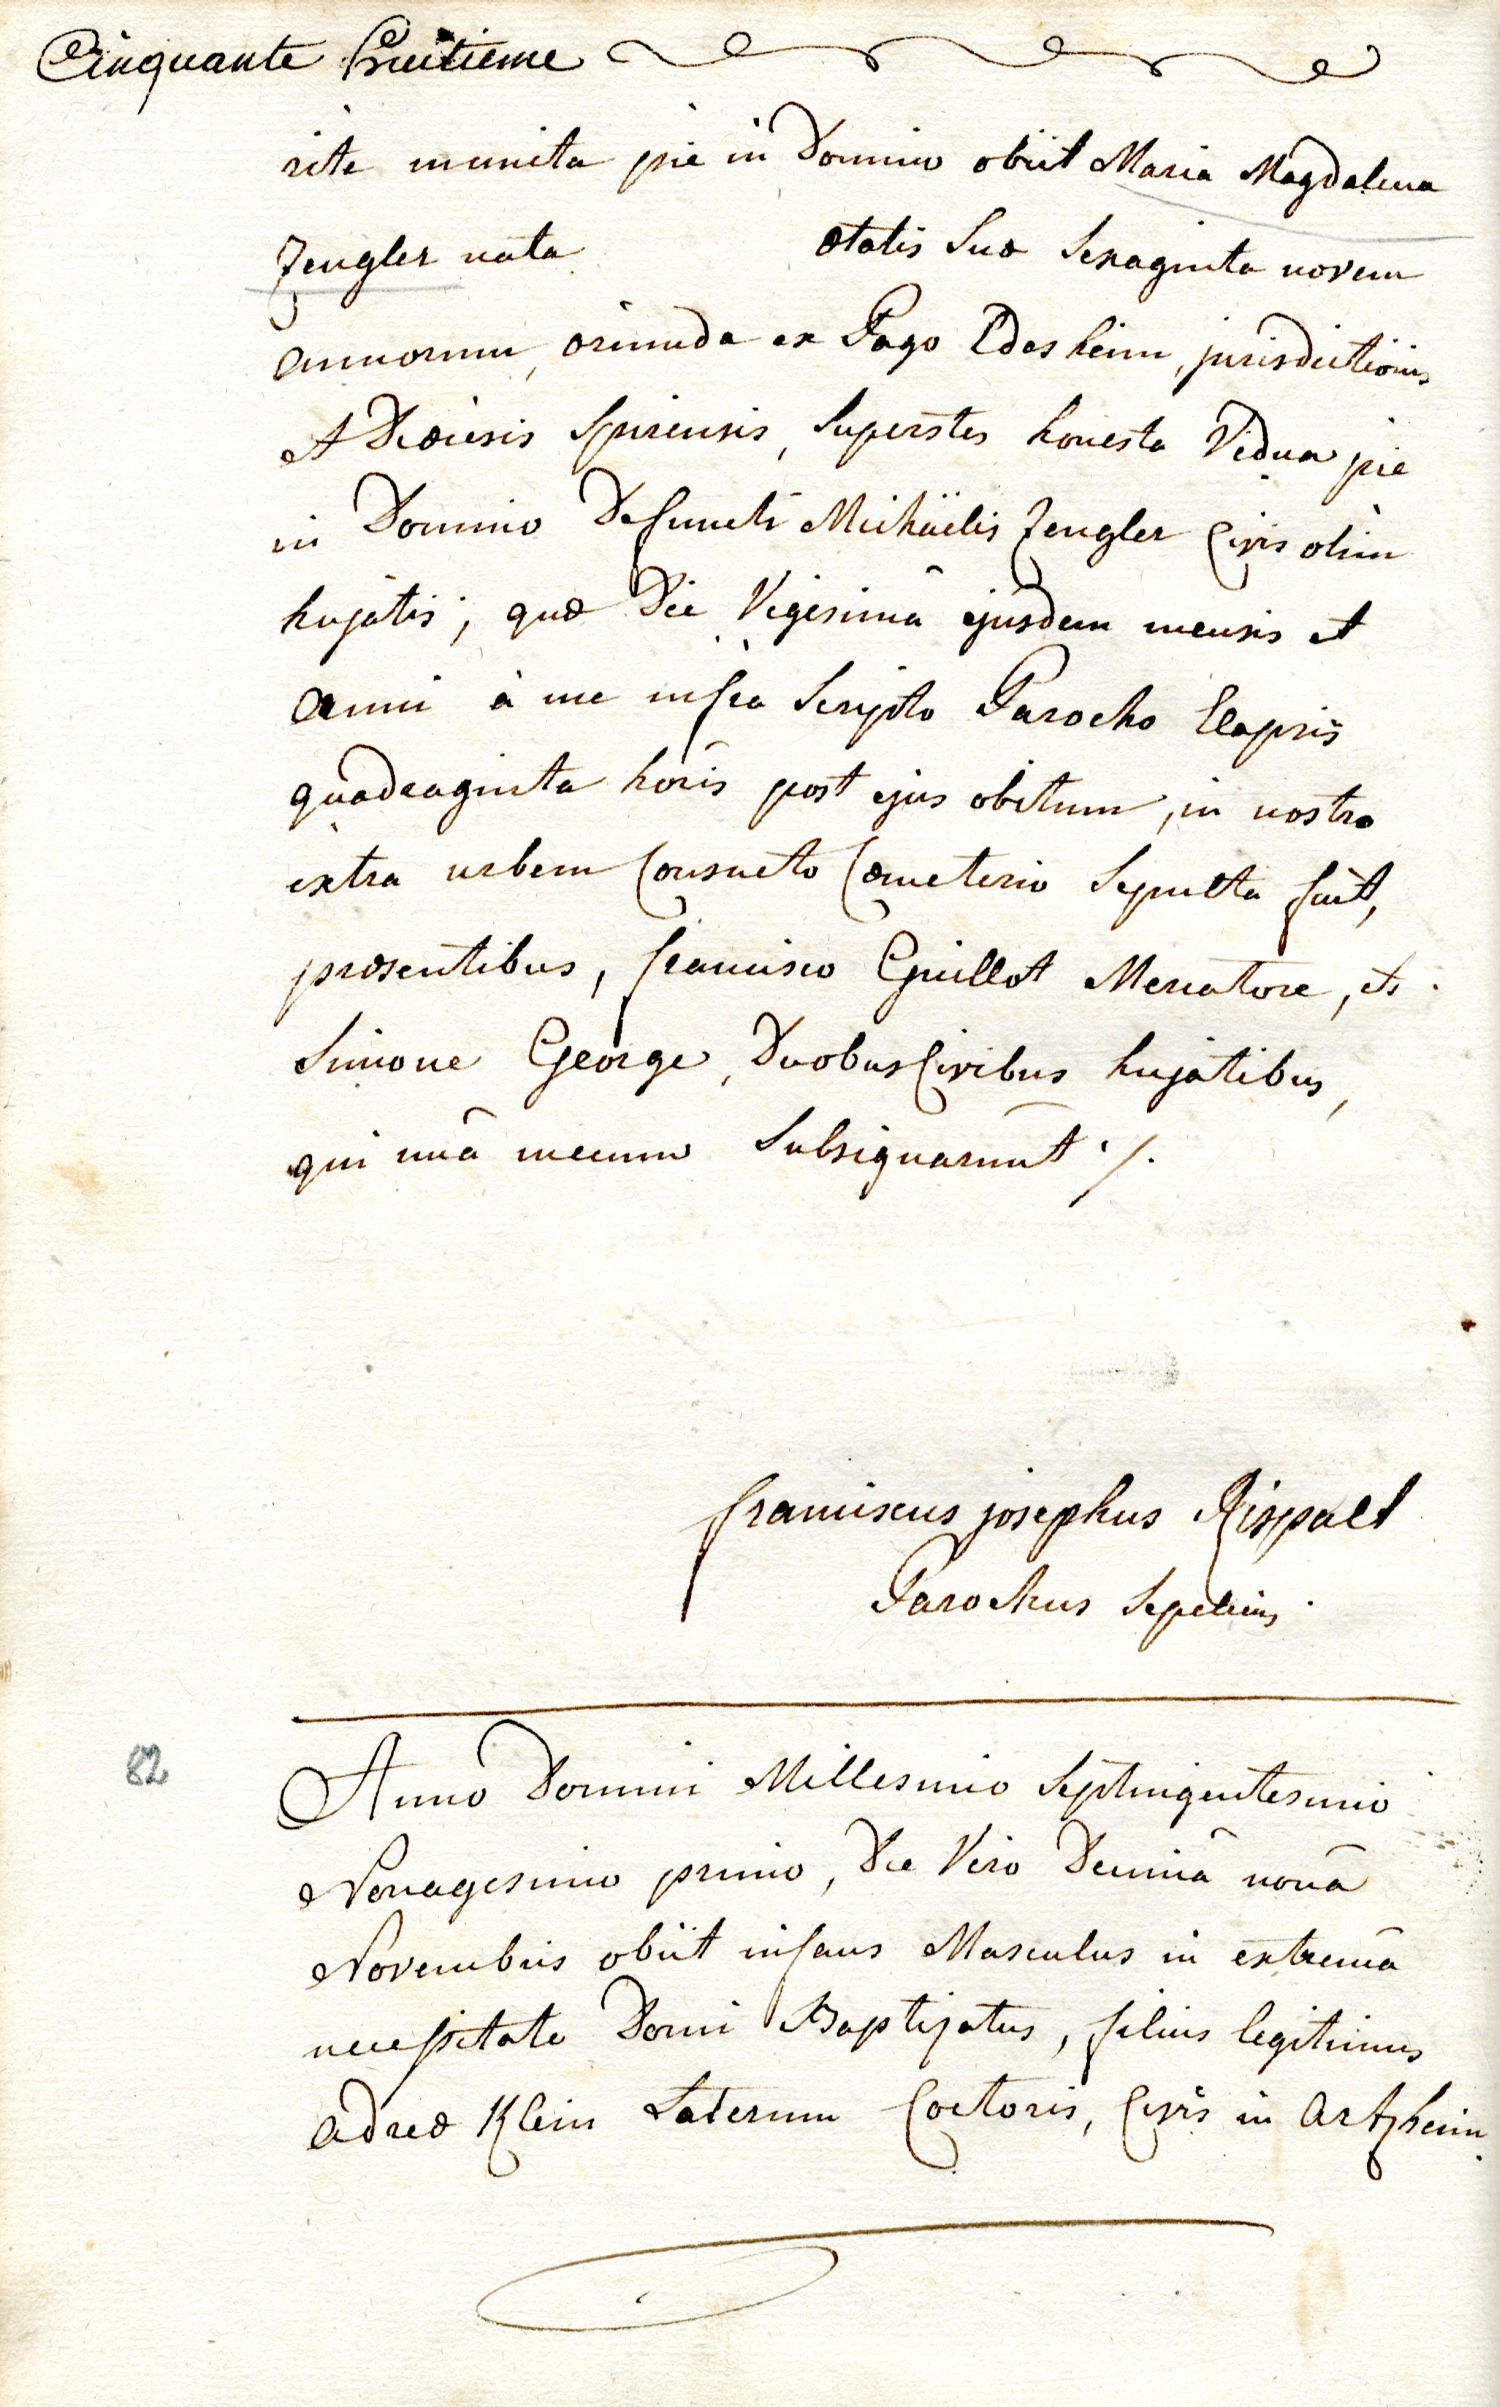 Cinquante huitieme
rite munita pie in Domino obiit Maria Magdalena
Zengler nata ætatis suæ sexaginta novem
annorum, oriunda ex Pago Edesheim, jurisdictionis
et Diœcesis Spirensis, superstes honesta Vidua pie
in Domino Defuncti Michäelis Zengler Civis olim
hujatis; quæ Die Vigesimâ ejusdem mensis et
anni à me infra scripto Parocho Elapsis
quadraginta horis post ejus obitum, in nostro
extra urbem Consueto Cœmeterio Sepulta fuit,
præsentibus, francisco Guillot Mercatore, et
Simone George, Duobus Civibus hujatibus,
qui unâ mecum Subsignarunt ·/.
franciscus josephus Rispalt
Parochus Sepeliens.
82
Anno Domini Millesimo Septingentesimo
Nonagesimo primo, Die Vero Decimâ nonâ
Novembris obiit infans Masculus in extremâ
necessitate Domi Baptizatus, filius legitimus
Andreæ Klein Laterum Coctoris, Civis in Artzheim.